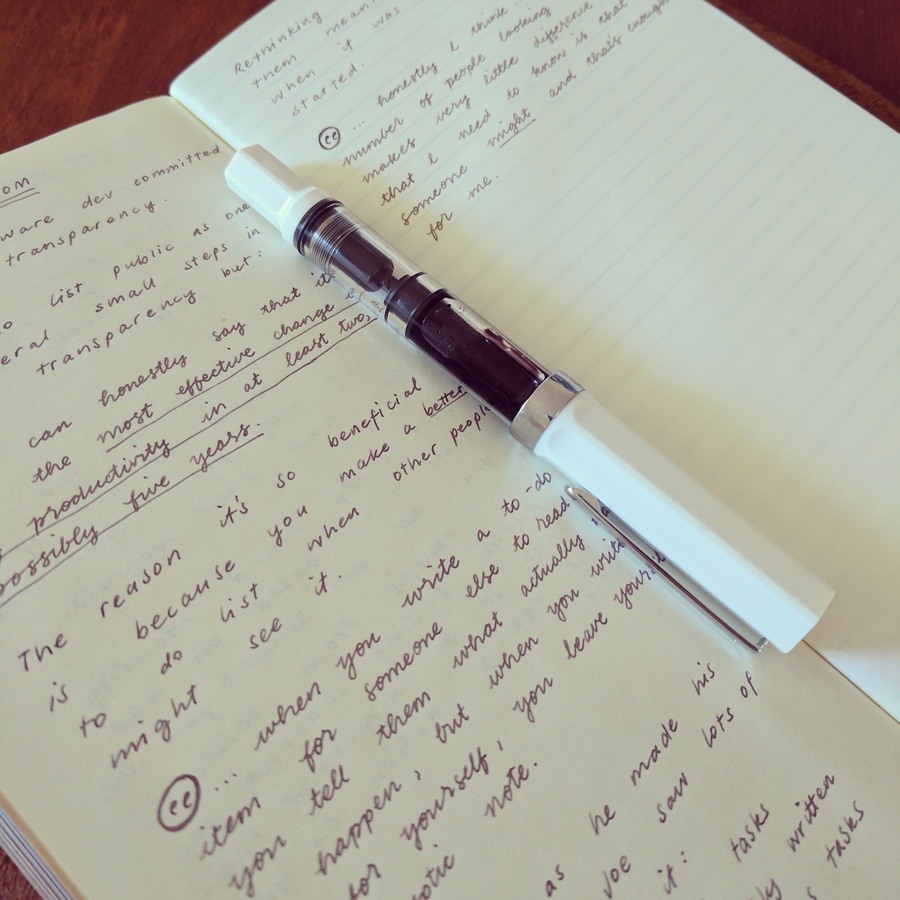 OM
ware dev committed
transparency.
list public as one
eral small steps in
transparency but:
can honestly say that it
the most effective change
productivity in at least two,
possibly five years.
The reason it's so beneficial
is because you make a better
to do list when other people
might see it.
... when you write a to-do
item for someone else to read,
you tell them what actually
happen, but when you write
for yourself, you leave yourself
note.
as he made his
Joe saw lots of
it: tasks
written
tasks
Rethinking
them mean
when it was
started.
... honestly I think ...
number of people looking
makes very little difference
that I need to know is that
someone might and that's enough
for me.